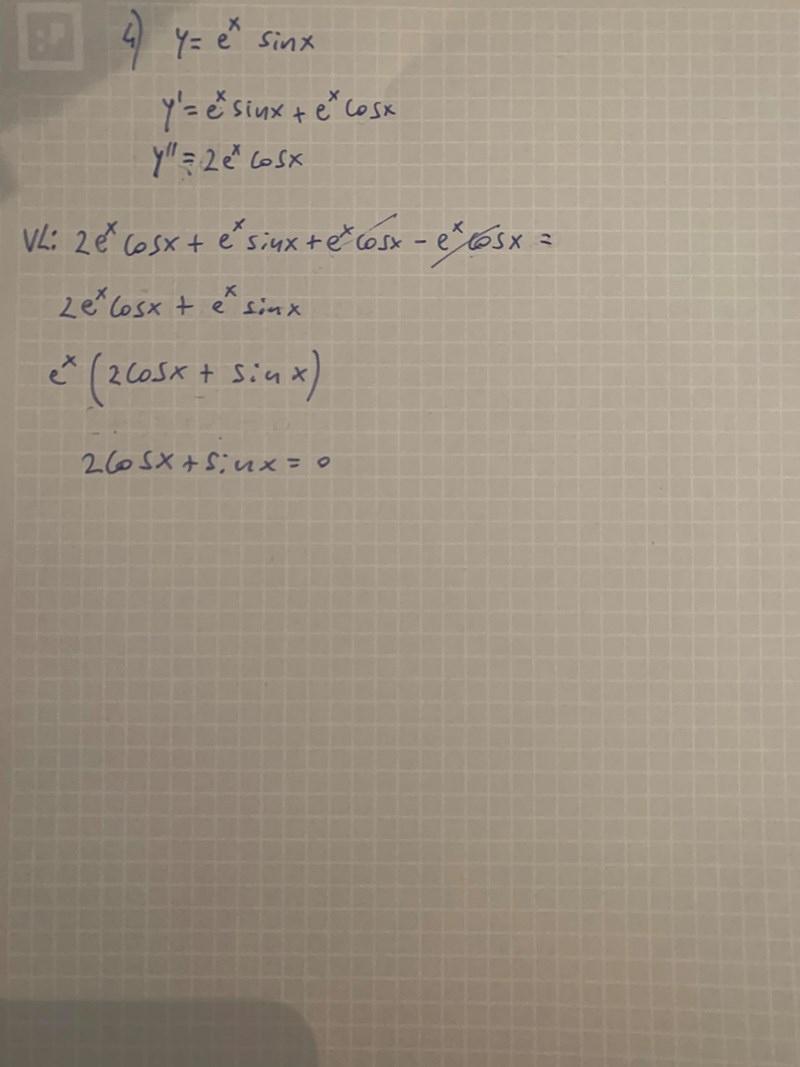 4) y = e^x sinx
y' = e^x sinx + e^x cosx
y'' = 2e^x cosx
VL: 2e^x cosx + e^x sinx + e^x cosx - e^x cosx =
2e^x cosx + e^x sinx
e^x (2cosx + sinx)
2cosx + sinx = 0